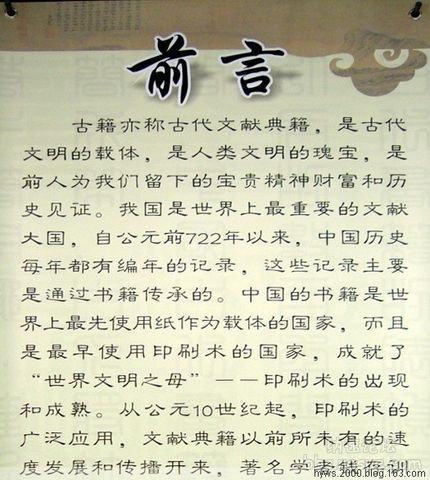 前言
古籍亦称古代文献典籍，是古代
文明的载体，是人类文明的瑰宝，是
前人为我们留下的宝贵精神财富和历
史见证。我国是世界上最重要的文献
大国，自公元前722年以来，中国历史
每年都有编年的记录，这些记录主要
是通过书籍传承的。中国的书籍是世
界上最先使用纸作为载体的国家，而且
是最早使用印刷术的国家，成就了
“世界文明之母”——印刷术的出现
和成熟。从公元10世纪起，印刷术的
广泛应用，文献典籍以前所未有的速
度发展和传播开来，著名学者
hyws.2000.blog.163.com